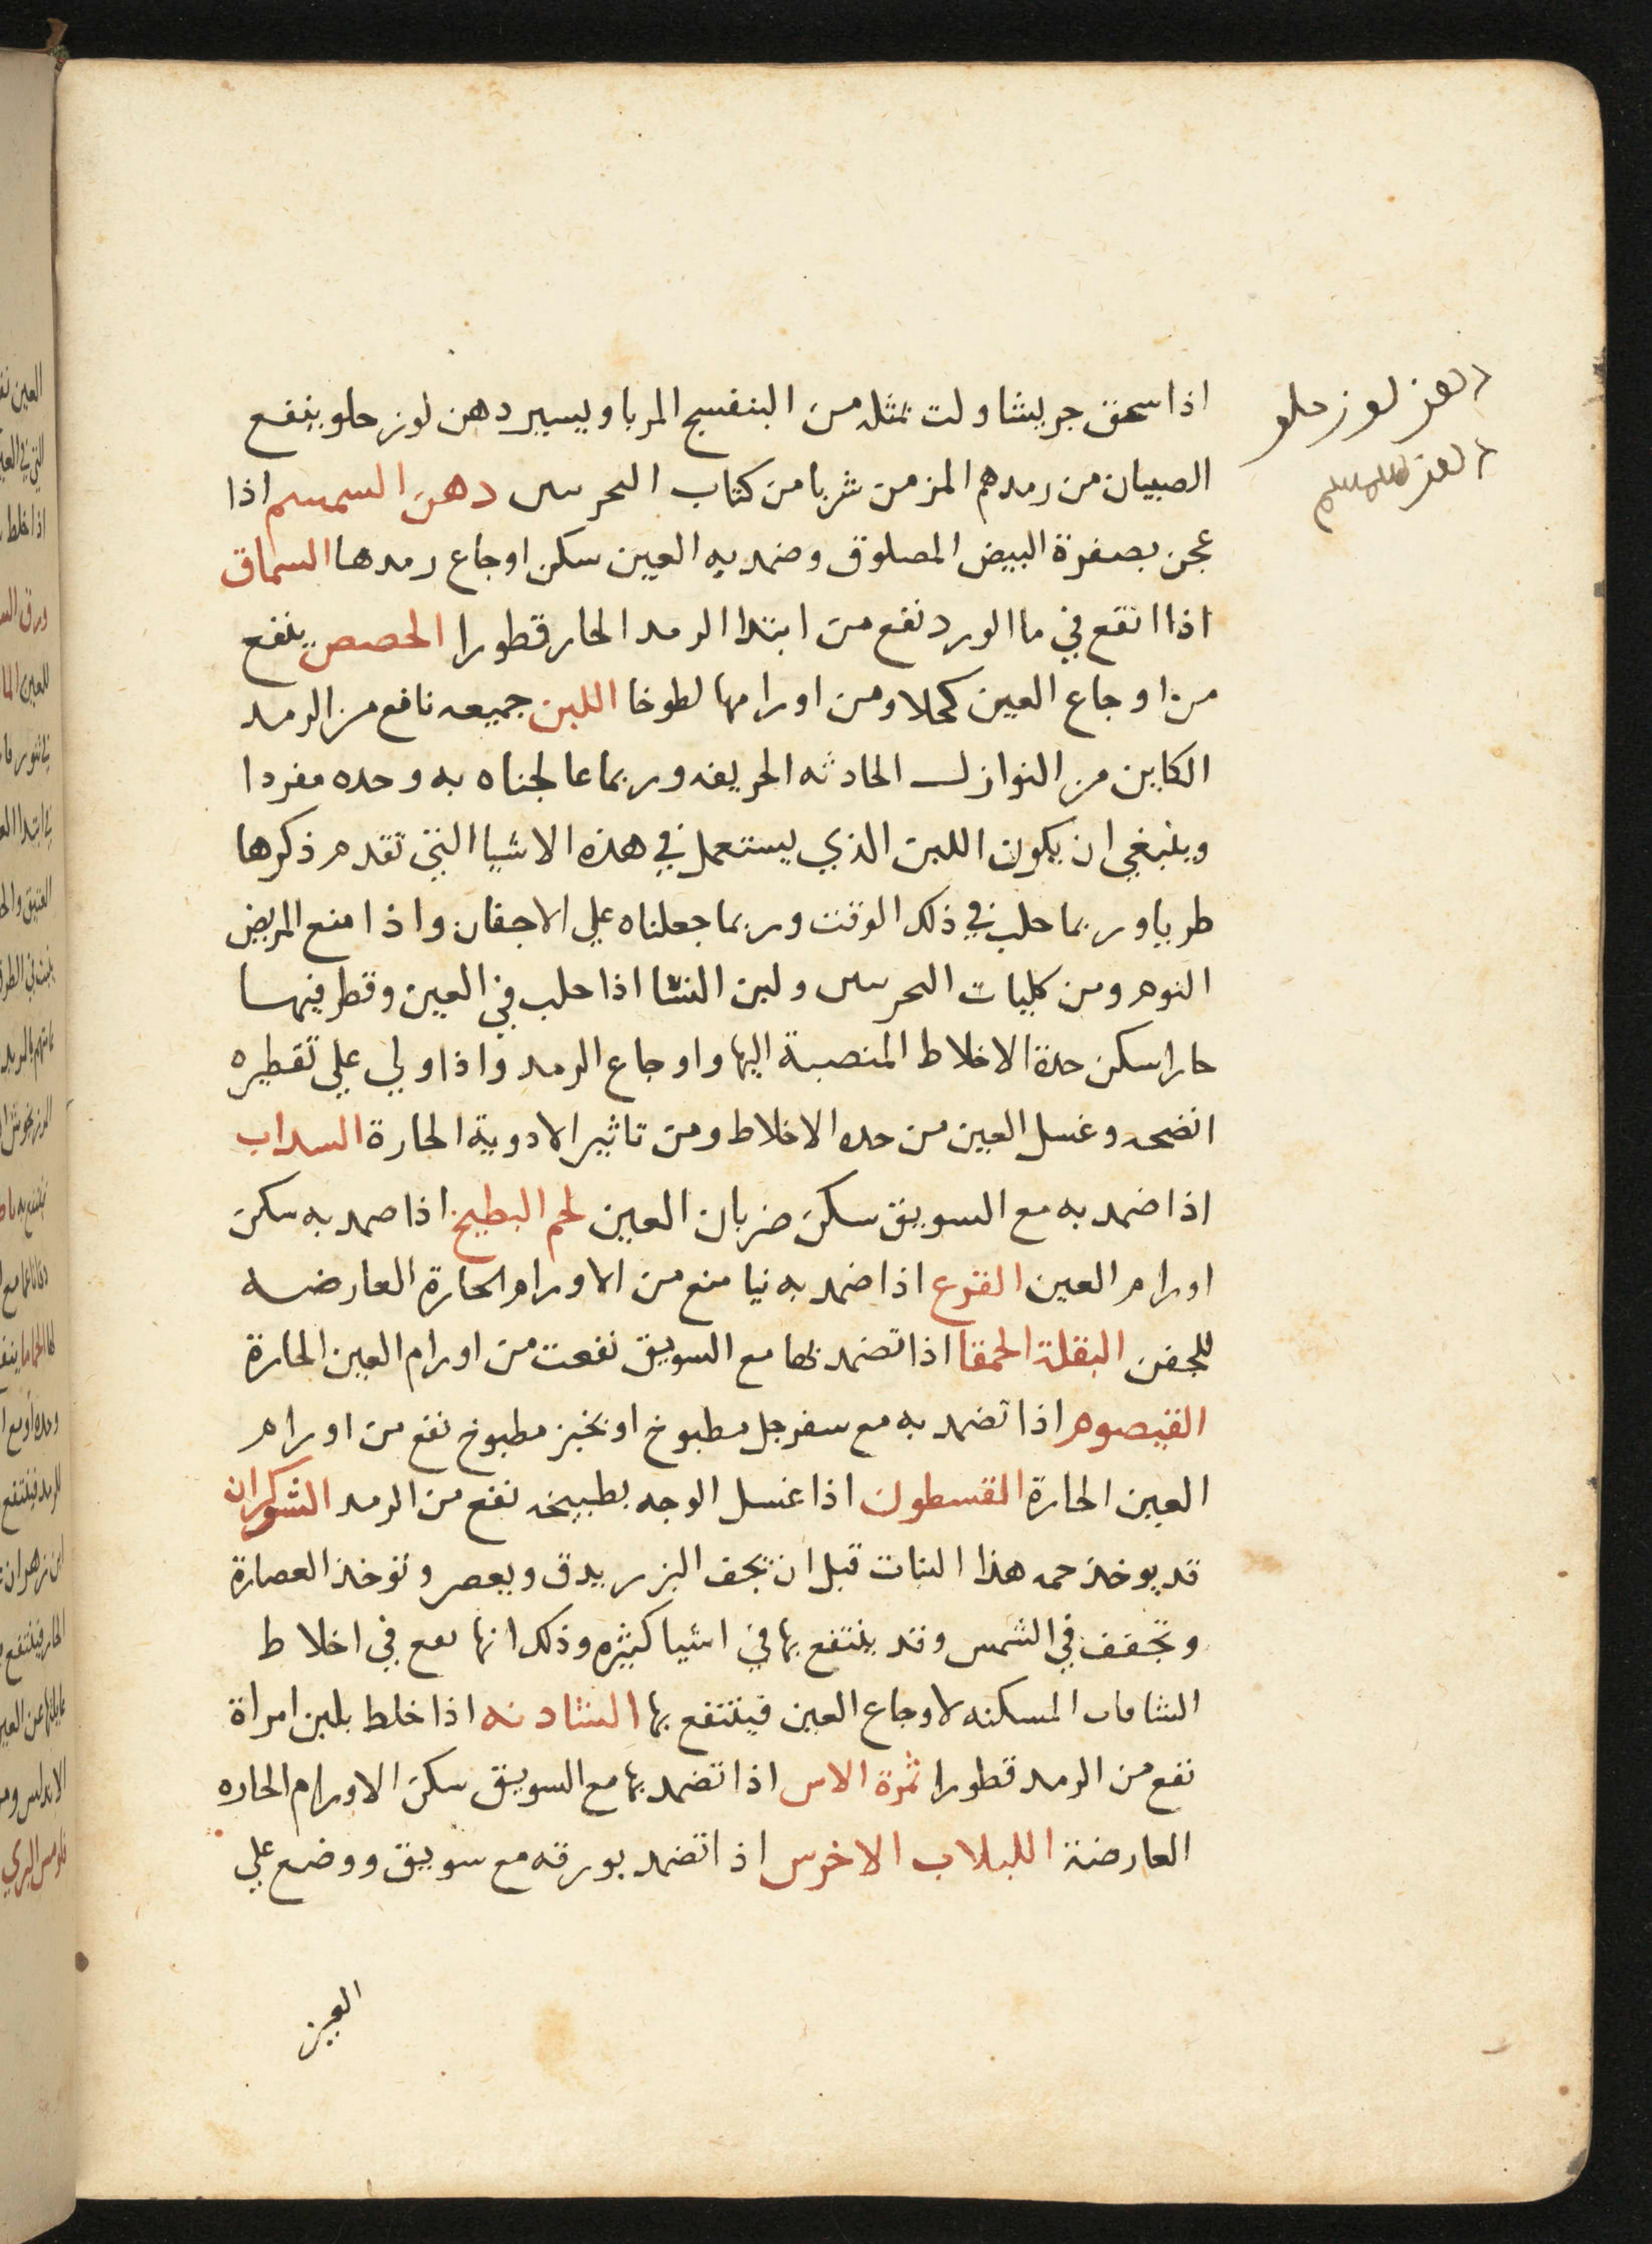 دهن لوز حلو
دهن السمسم
اذا سحق جريشا ولت بمثله من البنفسج المربا ويسير دهن لوز حلو ينفع
الصبيان من رمدهم المزمن شربا من كتاب دهن السمسم اذا
عجن بصفرة البيض المصلوق وضمد به العين سكن اوجاع رمدها السماق
اذا انقع في ما الورد نفع من ابتدا الرمد الحار قطورا الحصص ينفع
من اوجاع العين كحلا ومن اورامها لطوخا اللبن جميعه نافع من الرمد
الكاين من النوازل الحادثه الحريفه وربما عالجناه به وحده مفردا
وينبغي ان يكون اللبن الذي يستعمل في هذه الاشيا التي تقدم ذكرها
طريا وربما حلب في ذلك الوقت وربما جعلناه علي الاجفان واذا منع المريض
النوم ومن كليات ولبن النسا اذا حلب في العين وقطر فيها
حارا سكن حدة الاخلاط المنصبة اليها واوجاع الرمد واذا ولي علي تقطيره
انضجه وغسل العين من حده الاخلاط ومن تاثير الادوية الحارة السداب
اذا ضمد به مع السويق سكن ضربان العين لحم البطيخ اذا ضمد به سكن
اورام العين القرع اذا ضمد به نيا منع من الاورام الحارة العارضه
للجفن البقلة الحمقا اذا تضمد بها مع السويق نفعت من اورام العين الحارة
القيصوم اذا تضمد به مع سفرجل مطبوخ او بخبز مطبوخ نفع من اورام
العين الحارة القسطون اذا غسل الوجه بطبيخه نفع من الرمد الشوكران
قد يوخذ حمه هذا النبات قبل ان تجف البزر يدق ويعصر وتوخذ العصارة
وتجفف في الشمس وقد ينتفع بها في اشيا كثيره وذلك انها تقع في اخلاط
الشافات المسكنه لاوجاع العين فينتفع بها الشادنه اذا خلط بلبن امراة
نفع من الرمد قطورا ثمرة الاس اذا تضمد بها مع السويق سكن الاورام الحاره
العارضة اللبلاب الاخرس اذا تضمد بورقه مع سويق ووضع علي
العين